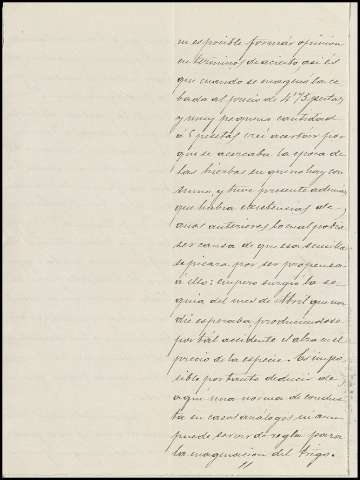 ni es posible formar opinion
en terminos de acierto, asi es
que cuando se enagenó la ce
bada al precio de 4'75 pesetas
y muy pequeña cantidad
á 5 pesetas creí acertar por
que se acercaba la epoca de
las hierbas en que no hay con
sumo, y tuve presente ademas
que habia existencias de
años anteriores lo cual podria
ser causa de que esa semilla
se picara por ser propensa
á ello: empero surgió la se
quia del mes de Abril que na
die esperaba, produciendose
por tal accidente el alza en el
precio de la especie. Es impo
sible por tanto deducir de
aquí una norma de conduc
ta en casos analogos ni aun
puede servir de regla para
la enagenacion del trigo.